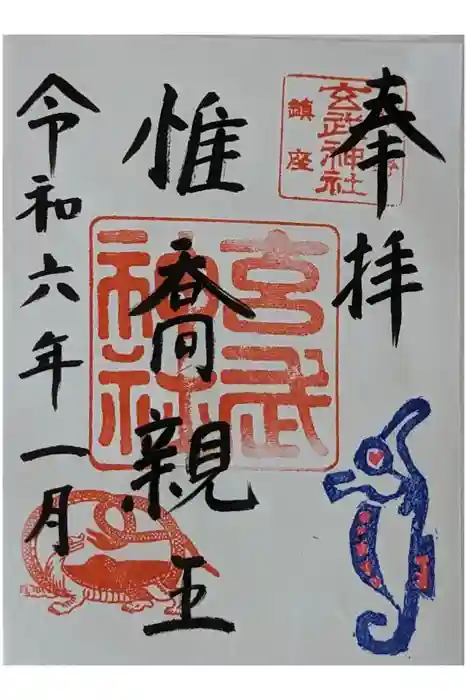 奉拝
玄武神社
鎮座
惟喬親王
玄武神社
令和六年一月